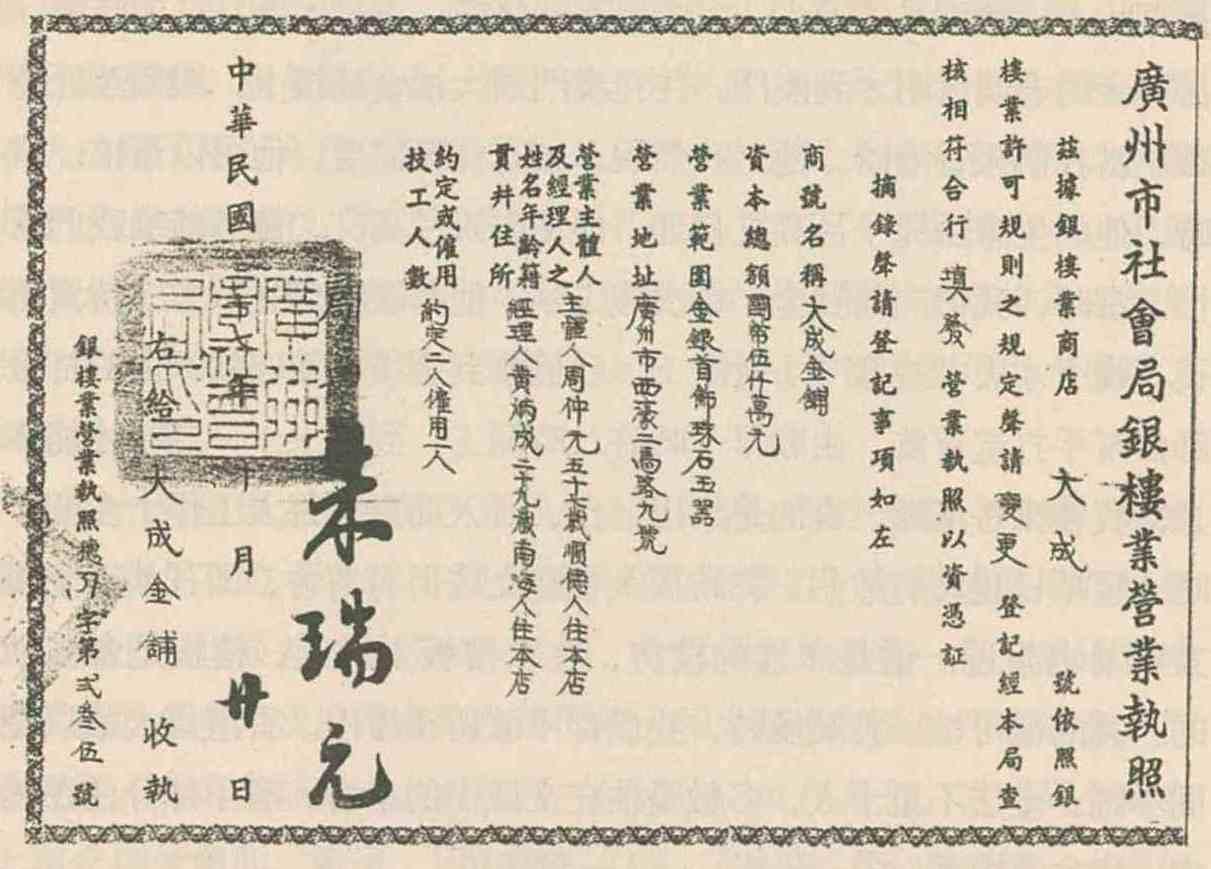 廣州市社會局銀樓業營業執照
茲據銀樓業商店 大成 號依照銀
樓業許可規則之規定聲請變更登記經本局查
核相符合行填發營業執照以資憑証
摘錄聲請登記事項如左
商號名稱大成金舖
資本總額國幣伍仟萬元
營業範圍金銀首飾珠石玉器
營業地址廣州市西濠二馬路九號
營業主體人主體人周仲元五十七歲順德人住本店
及經理人之
姓名年齡籍經理人黃炳成三十九歲南海人住本店
貫并住所
約定或僱用
技工人數約定二人僱用一人
局
朱瑞元
中華民國 年十月廿日
右給大成金舖收執
銀樓業營業執照 字第弍叁伍號